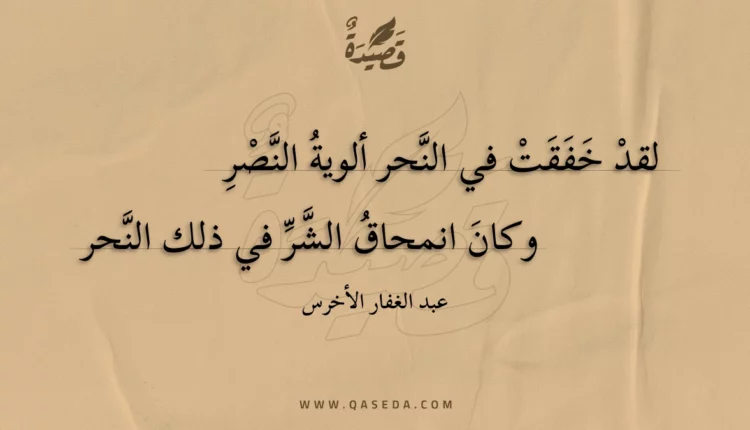 قَصِيْدَةٌ
لقدْ خَفَقَتْ في النَّحر ألويةُ النَّصْرِ
وكانَ انمحاقُ الشَّرِّ في ذلك النَّحر
عبد الغفار الأخرس
WWW.QASEDA.COM